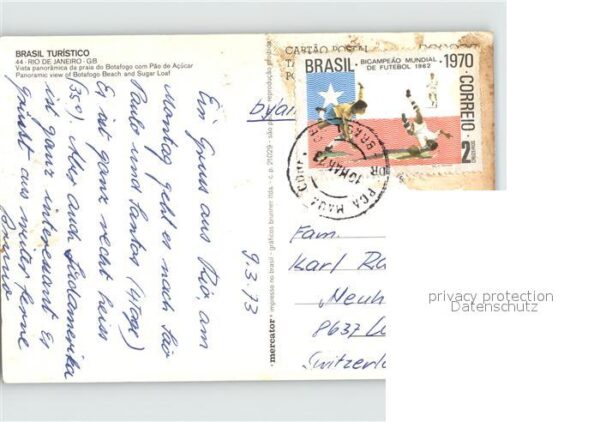 BRASIL TURÍSTICO
44 - RIO DE JANEIRO - GB
Vista panorâmica da praia do Botafogo com Pão de Açúcar
Panoramic view of Botafogo Beach and Sugar Loaf
Ein Gruss aus Rio am
Montag geht es nach Sao
Paulo und Santos (4 Tage)
Es ist ganz recht heiss
(35°) Aber auch Südamerika
ist ganz interessant Es
grüsst aus weiter Ferne
9.3.73
mercator impresso no brasil - gráficos brunner ltda. - c. p. 25029 - são
reprodução
CARTÃO POSTAL
BRASIL
BICAMPEÃO MUNDIAL
DE FUTEBOL 1962
1970
CORREIO
2
PCA MAUA
10 MAR 73
Fam.
Karl
Neuh
8637
Switzerl
privacy protection
Datenschutz